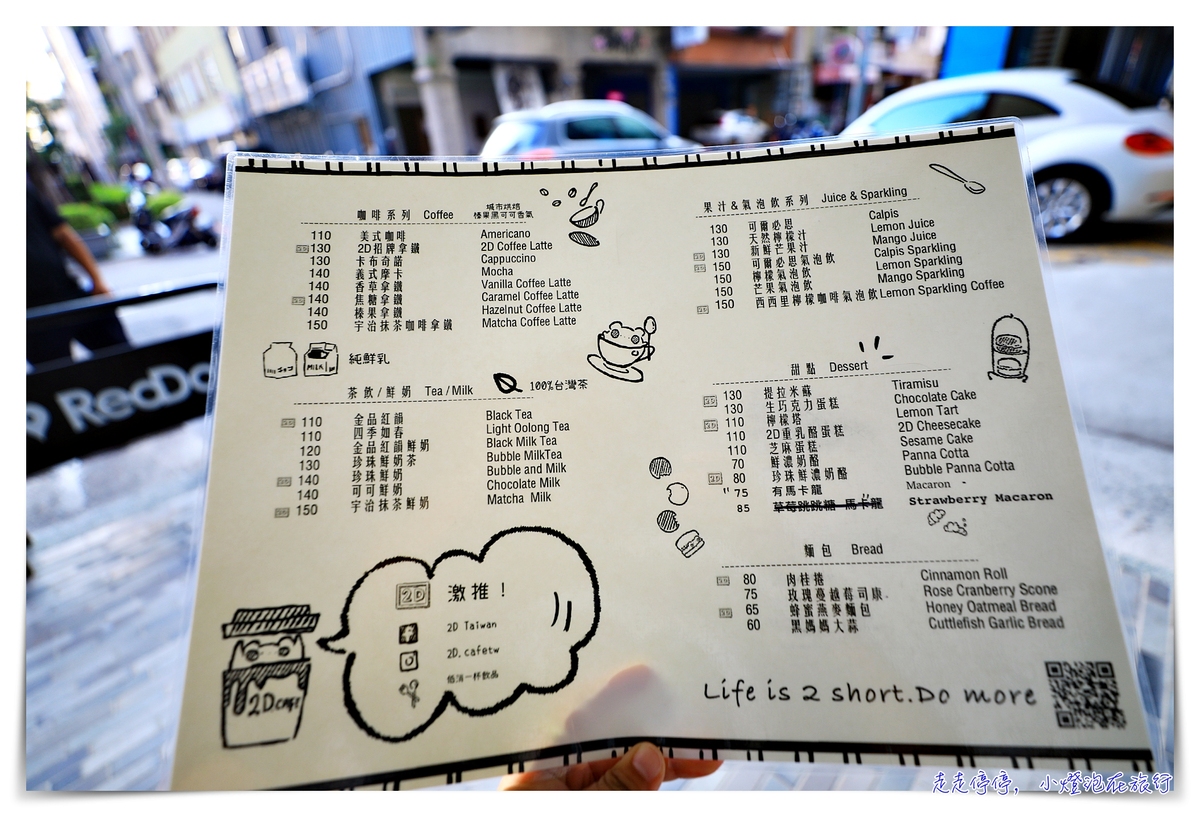 咖啡系列 Coffee
城市烘焙
榛果黑可可香氣
110 美式咖啡 Americano
2D 130 2D招牌拿鐵 2D Coffee Latte
130 卡布奇諾 Cappuccino
140 義式摩卡 Mocha
140 香草拿鐵 Vanilla Coffee Latte
2D 140 焦糖拿鐵 Caramel Coffee Latte
140 榛果拿鐵 Hazelnut Coffee Latte
150 宇治抹茶咖啡拿鐵 Matcha Coffee Latte
MILK 純鮮乳
茶飲/鮮奶 Tea/Milk
100%台灣茶
2D 110 金品紅韻 Black Tea
110 四季如春 Light Oolong Tea
120 金品紅韻鮮奶 Black Milk Tea
130 珍珠鮮奶茶 Bubble MilkTea
2D 140 珍珠鮮奶 Bubble and Milk
140 可可鮮奶 Chocolate Milk
2D 150 宇治抹茶鮮奶 Matcha Milk
2D 激推！
2D Taiwan
2D.cafetw
低消一杯飲品
2D CAFE
果汁&氣泡飲系列 Juice & Sparkling
130 可爾必思 Calpis
130 天然檸檬汁 Lemon Juice
2D 130 新鮮芒果汁 Mango Juice
2D 150 可爾必思氣泡飲 Calpis Sparkling
150 檸檬氣泡飲 Lemon Sparkling
150 芒果氣泡飲 Mango Sparkling
2D 150 西西里檸檬咖啡氣泡飲 Lemon Sparkling Coffee
甜點 Dessert
2D 130 提拉米蘇 Tiramisu
130 生巧克力蛋糕 Chocolate Cake
2D 110 檸檬塔 Lemon Tart
110 2D重乳酪蛋糕 2D Cheesecake
110 芝麻蛋糕 Sesame Cake
70 鮮濃奶酪 Panna Cotta
2D 80 珍珠鮮濃奶酪 Bubble Panna Cotta
75 有馬卡龍 Macaron
85 草莓跳跳糖 馬卡龍 Strawberry Macaron
麵包 Bread
2D 80 肉桂捲 Cinnamon Roll
75 玫瑰蔓越莓司康 Rose Cranberry Scone
2D 65 蜂蜜燕麥麵包 Honey Oatmeal Bread
60 黑媽媽大蒜 Cuttlefish Garlic Bread
Life is 2 short.Do more
RedDo
走走停停，小燈泡在旅行